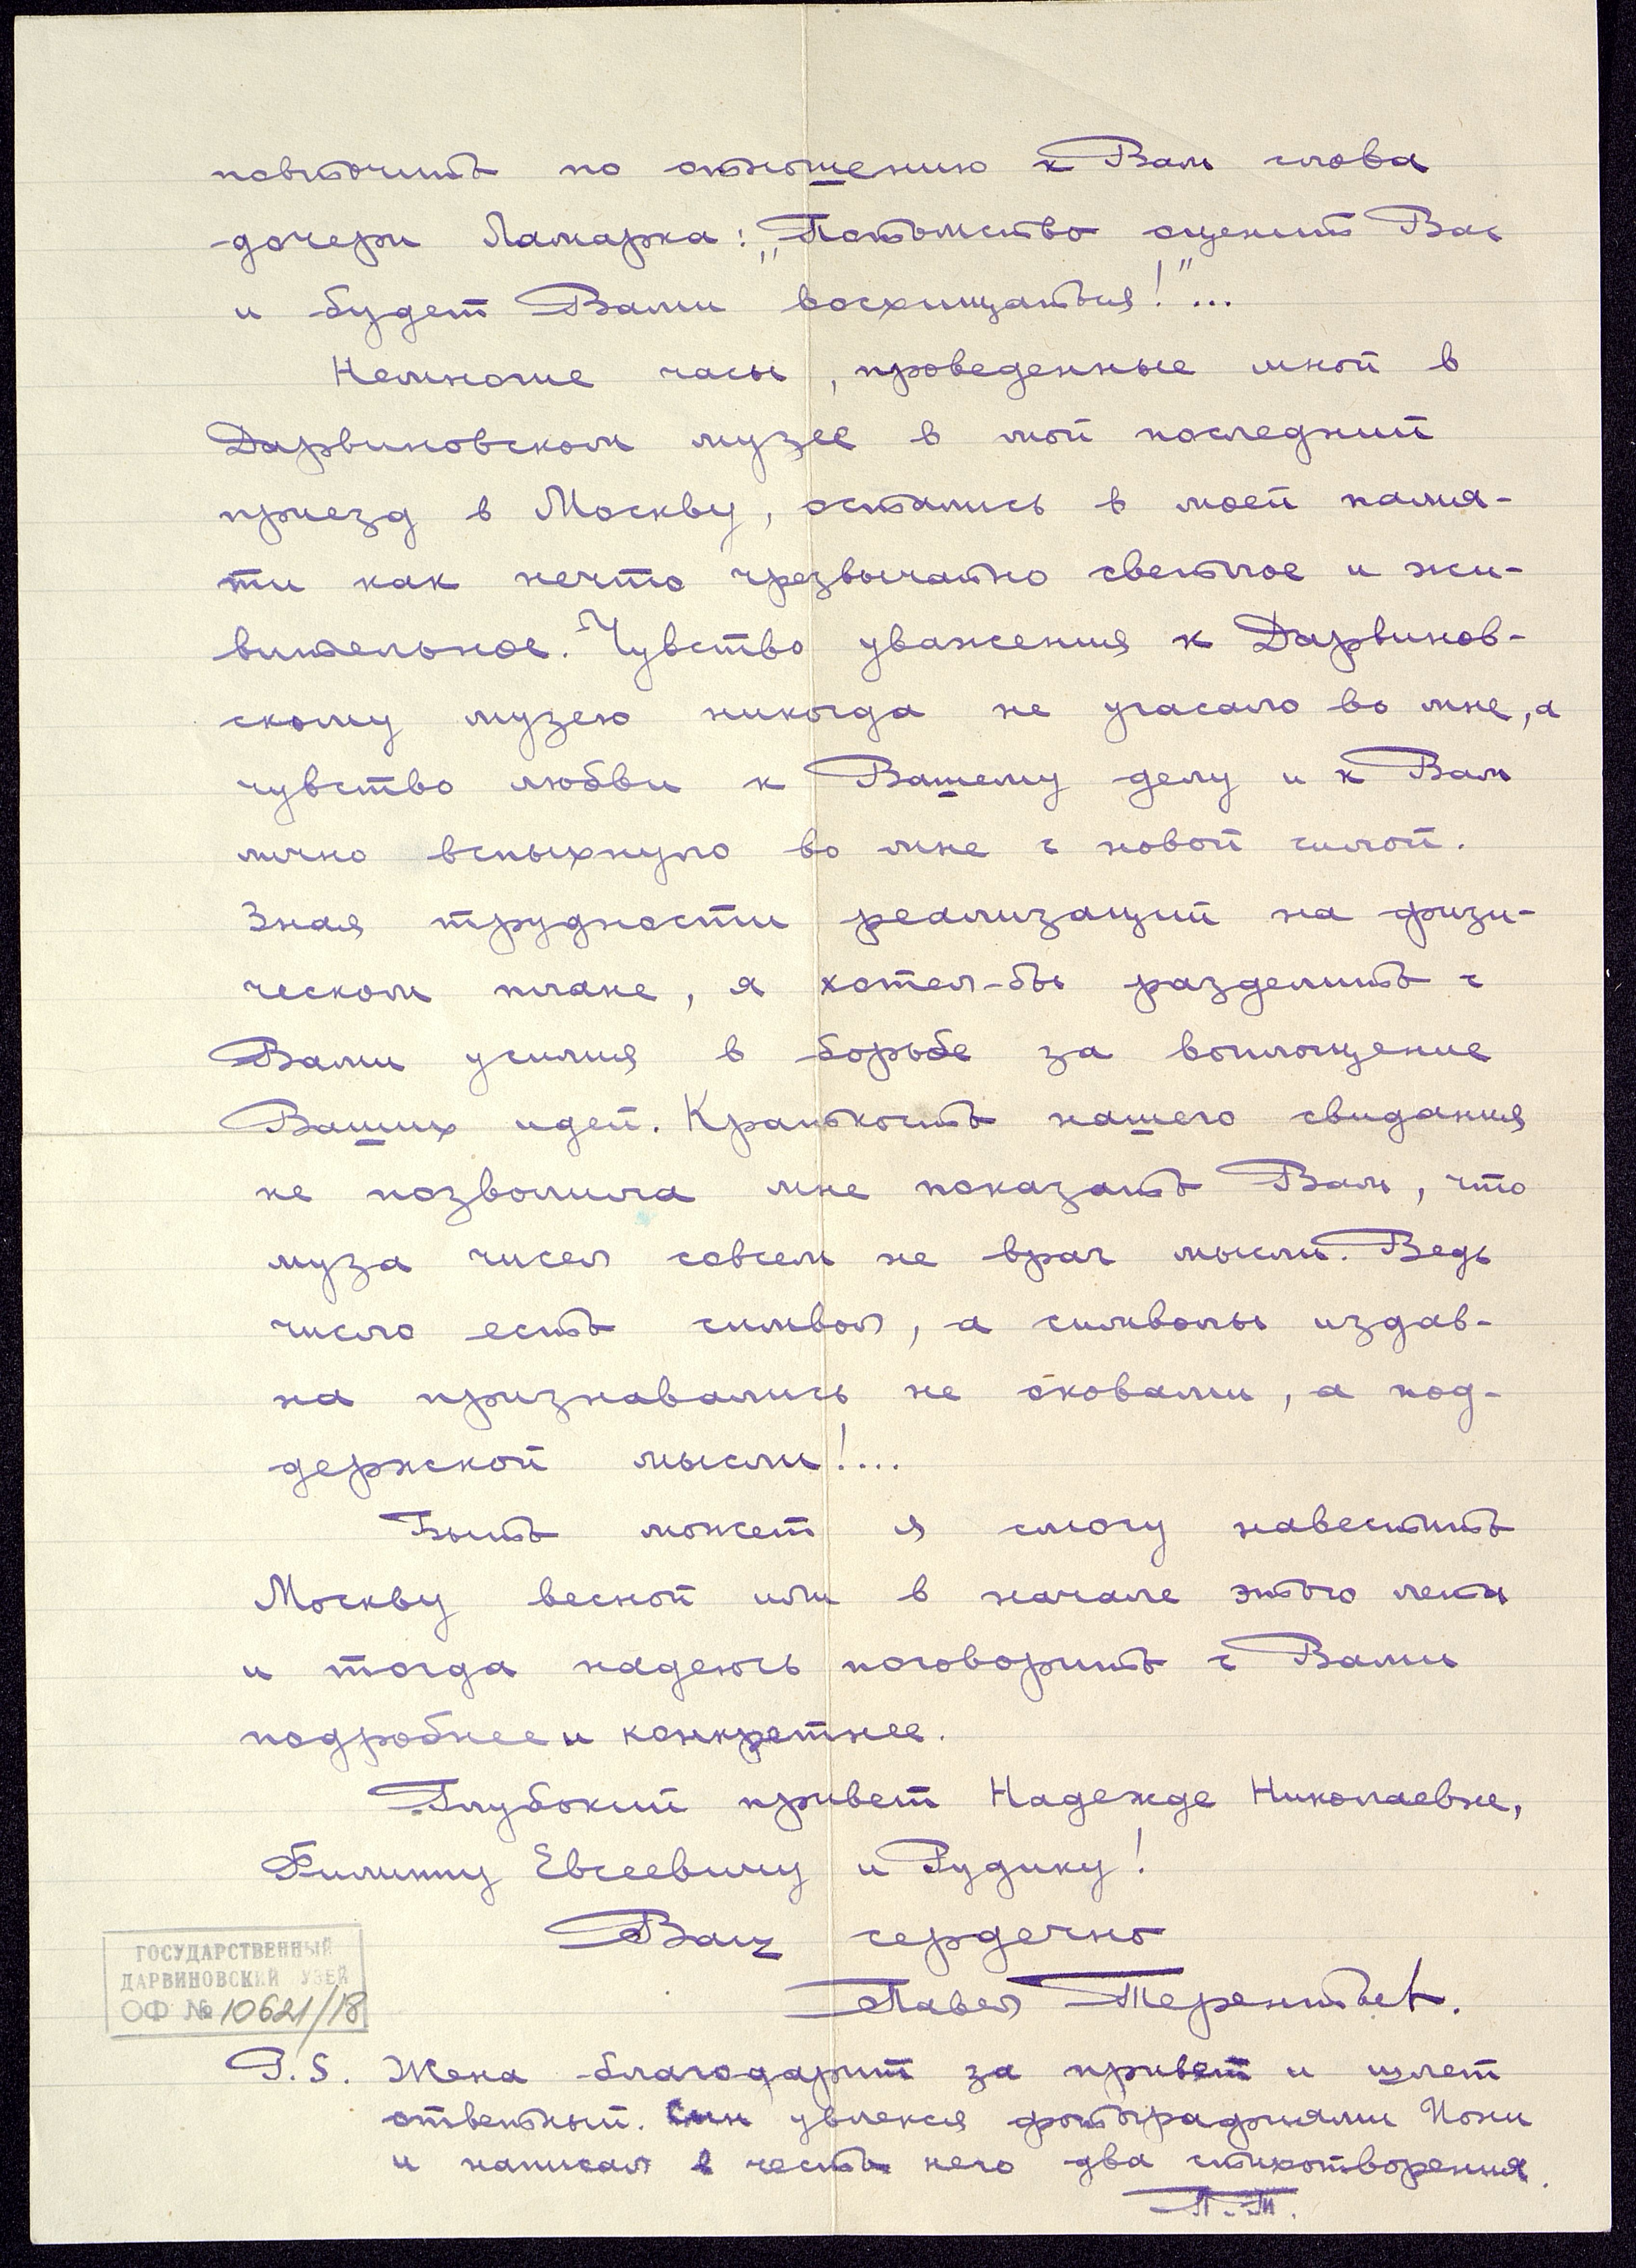 повторить по отношению к Вам слова
дочери Ламарка: „Потомство оценит Вас
и будет Вами восхищаться!"...
Немногие часы, проведенные мной в
Дарвиновском музее в мой последний
приезд в Москву, остались в моей памя-
ти как нечто чрезвычайно светлое и жи-
вительное. Чувство уважения к Дарвинов-
скому музею никогда не угасало во мне, а
чувство любви к Вашему делу и к Вам
лично вспыхнуло во мне с новой силой.
Зная трудности реализаций на физи-
ческом плане, я хотел-бы разделить с
Вами усилия в борьбе за воплощение
Ваших идей. Краткость нашего свидания
не позволила мне показать Вам, что
муза чисел совсем не враг мысли. Ведь
число есть символ, а символы издав-
на признавались не оковами, а под-
держкой мысли!...
Быть может я смогу навестить
Москву весной или в начале этого лета
и тогда надеюсь поговорить с Вами
подробнее и конкретнее.
Глубокий привет Надежде Николаевне,
Филиппу Евсеевичу и Рудику!
Ваш сердечно
Павел Терентьев.
P.S. Жена благодарит за привет и шлет
ответный. Сын увлекся фотографиями Иони
и написал в честь него два стихотворения.
П.Т.
ГОСУДАРСТВЕННЫЙ
ДАРВИНОВСКИЙ УЗЕЙ
ОФ № 10621/18